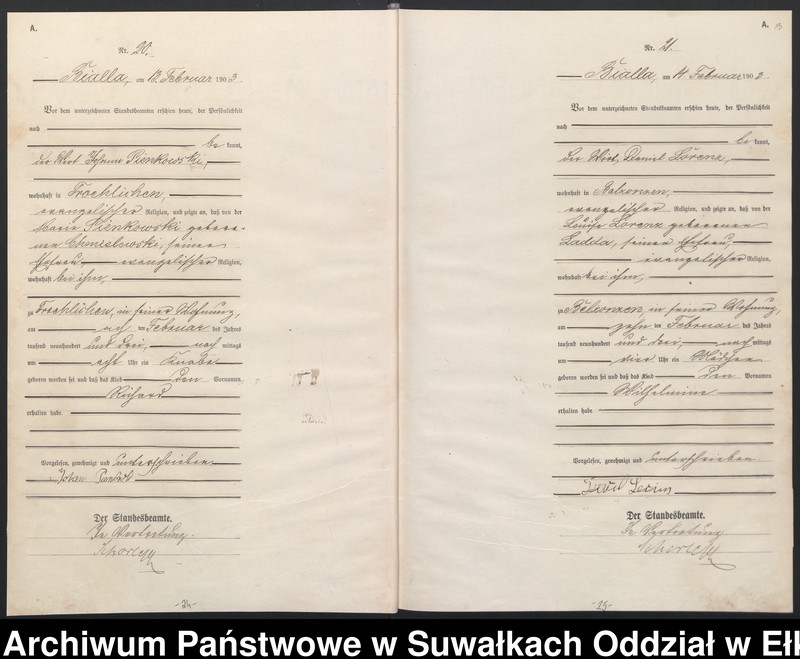 A.
Nr. 20.
Bialla, am 13. Februar 1903
Vor dem unterzeichneten Standesbeamten erschien heute, der Persönlichkeit
nach
be kannt,
der Wirt Johann Pienkowski,
wohnhaft in Froehlichen,
evangelischer Religion, und zeigte an, daß von der
Marie Pienkowski gebore-
nen Chmielewski, seiner
Ehefrau evangelischer Religion,
wohnhaft bei ihm,
zu Froehlichen, in seiner Wohnung,
am im Februar des Jahres
tausend neunhundert und drei, nach mittags
um acht Uhr ein Knabe
geboren worden sei und daß das Kind den Vornamen
Richard
erhalten habe.
Vorgelesen, genehmigt und unterschrieben
Johan
Der Standesbeamte.
In Vertretung.
-24-
A.
Nr. 21.
Bialla, am 14. Februar 1903
Vor dem unterzeichneten Standesbeamten erschien heute, der Persönlichkeit
nach
be kannt,
der Wirt Daniel Lorenz,
wohnhaft in
evangelischer Religion, und zeigte an, daß von der
Louise Lorenz geborenen
Ladda, seiner Ehefrau,
evangelischer Religion,
wohnhaft bei ihm,
zu in seiner Wohnung,
am zehn im Februar des Jahres
tausend neunhundert und drei, nach mittags
um vier Uhr ein Mädchen
geboren worden sei und daß das Kind den Vornamen
Wilhelmine
erhalten habe.
Vorgelesen, genehmigt und unterschrieben.
Der Standesbeamte.
In Vertretung
-25-
Archiwum Państwowe w Suwałkach Oddział w Ełk